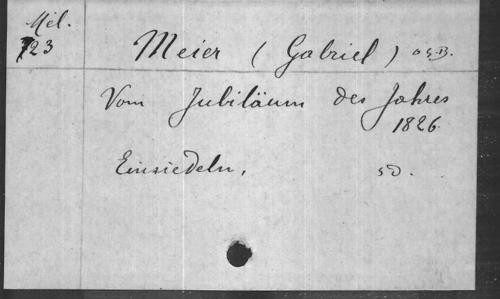 Mél.
723
Meier (Gabriel) O.S.B.
Vom Jubiläum des Jahres
1826.
Einsiedeln, s.d.